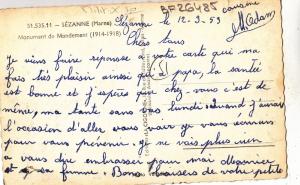 51.535.11 - SÉZANNE (Marne)
Monument de Mondement (1914-1918)
BFZG485
cousine
McAdam
Sézanne le 12-3-59
Chers tous
Je viens faire réponse à votre carte qui m'a
fais très plaisir ainsi qu'à papa, la santée
est bonne et j'espères que chez-vous c'est de
même, ma tante sans vas lundi quand j'aurai
l'occasion d'aller vous voir je vous écrirais
pour vous prévenir. je ne vais plus rien
a vous dire embrasser pour moi
et sa femme. Bons baisers de votre petite